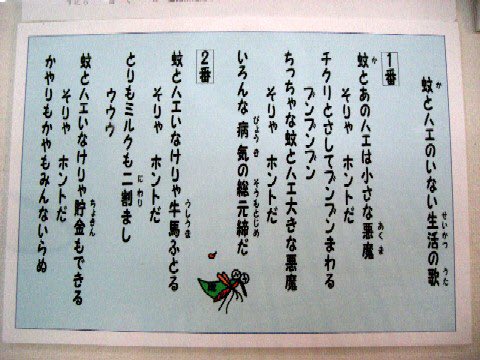 蚊とハエのいない生活の歌
1番
蚊とあのハエは小さな悪魔
そりゃ ホントだ
チクリとさしてブンブンまわる
ブンブンブン
ちっちゃな蚊とハエ大きな悪魔
そりゃ ホントだ
いろんな病気の総元締だ
2番
蚊とハエいなけりゃ牛馬ふとる
そりゃ ホントだ
とりもミルクも二割まし
ウウウ
蚊とハエいなけりゃ貯金もできる
そりゃ ホントだ
かやりもかやもみんないらぬ